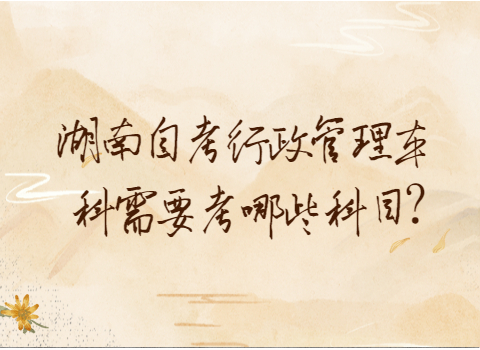 湖南自考行政管理本
科需要考哪些科目?